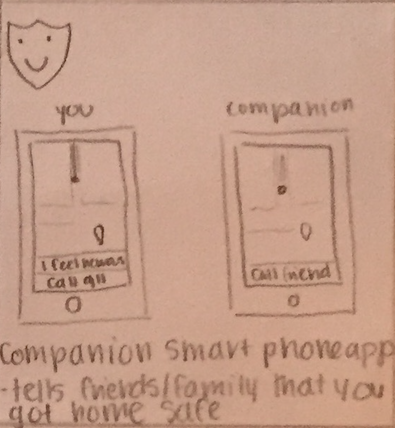 you
companion
I feel nervous
Call 911
Call friend
Companion smart phone app
-tells friends/family that you
got home safe